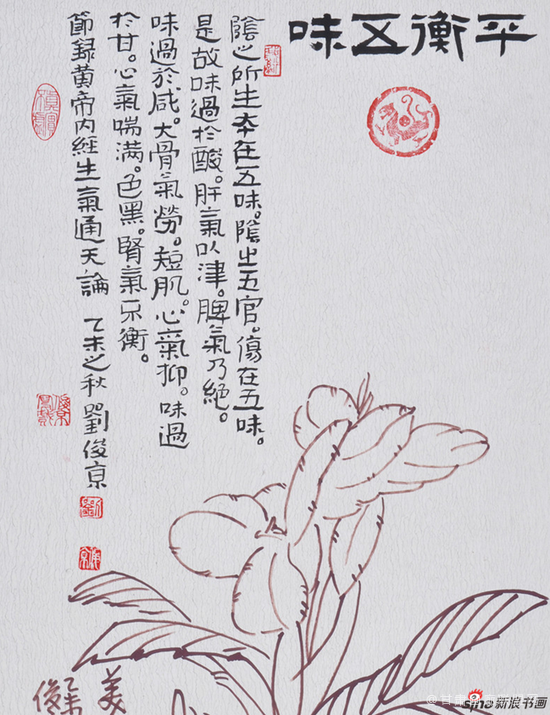 平衡五味
陰之所生本在五味。陰之五官。傷在五味。
是故味過於酸。肝氣以津。脾氣乃絕。
味過於咸。大骨氣勞。短肌。心氣抑。味過
於甘。心氣喘滿。色黑。腎氣不衡。
節録黄帝内經生氣通天論 乙未之秋 劉俊京
美
俊
@甘肃
sina新浪书画